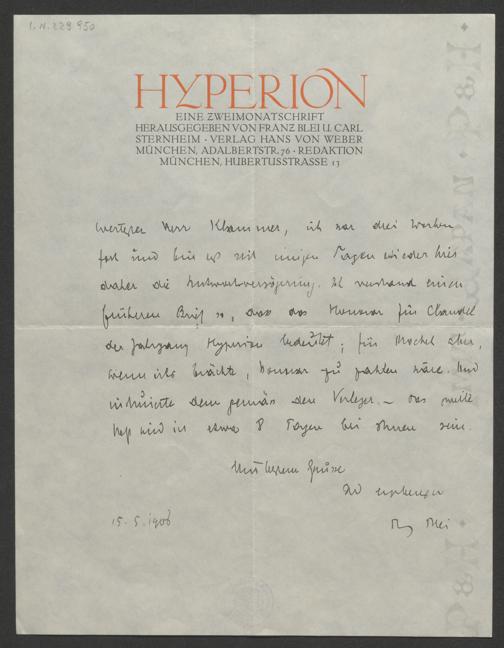 I.N. 229 950
HYPERION
EINE ZWEIMONATSCHRIFT
HERAUSGEGEBEN VON FRANZ BLEI U. CARL
STERNHEIM · VERLAG HANS VON WEBER
MÜNCHEN, ADALBERTSTR. 76 · REDAKTION
MÜNCHEN, HUBERTUSSTRASSE 13
Werter Herr Klammer, ich war drei Wochen
fort und bin erst seit einigen Tagen wieder hier
daher die Antwortverzögerung. Ich verstand einen
früheren Brief so, dass das Honorar für Claudel
der Jahrgang Hyperion bedeutet; für Mockel aber,
wenn ichs brächte, Honorar zu zahlen wäre. Und
instruierte dem gemäss den Verleger. – Das zweite
Heft wird in etwa 8 Tagen bei Ihnen sein.
Mit besten Grüssen
Ihr ergebener
Blei
15.5.1908